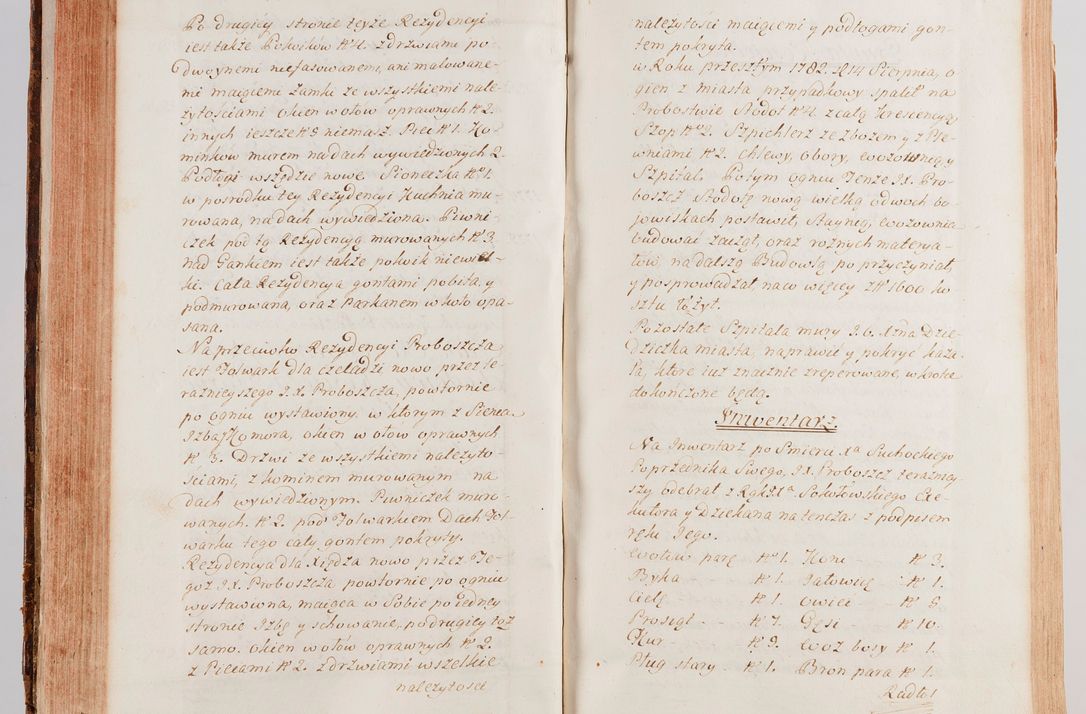 Po drugiey stronie teyże Rezydencyi
iest także Pokoików No 4. z drzwiami po-
dwoynemi niefasowanemi, ani malowane-
mi maiącemi Zamki ze wszystkiemi nale-
żytościami Okien w ołow oprawnych No 2.
innych ieszcze No 8 niemasz. Piec No 1. Ko-
minkow murem na dach wywiedzionych 2.
Podłogi wszędzie nowe Sioneczka No 1.
w posrodku tey Rezydencyi Kuchnia mu-
rowana, na dach wywiedziona. Piwni-
czek pod tą Rezydencyą murowanych No 3.
nad Gankiem iest także pokoik niewiel-
ki. Cała Rezydencya gontami pobita, y
podmurowana, oraz Parkanem w koło opa-
sana.
Na przeciwko Rezydencyi Proboszcza
iest Folwark dla czeladzi nowo przez te-
raznieyszego J. X. Proboszcza, powtornie
po ogniu wystawiony. w ktorym z Sienia
Izba, Komora, okien w ołow oprawnych
No 3. Drzwi ze wszystkiemi należyto-
ściami, z kominem murowanym na
dach wywiedzionym. Piwniczek muro-
wanych. No 2. pod Folwarkiem Dach Fol-
warku tego cały gontem pokryty.
Rezydencya dla Xiędza nowo przez Te-
goż J. X. Proboszcza powtornie po ogniu
wystawiona, maiąca w Sobie po iedney
stronie Izbę y schowanie, po drugiey toż
samo. Okien w ołow oprawnych No 2.
z Piecami No 2. z drzwiami wszelkie
należytosci
należytości maiącemi y podłogami gon-
tem pokryta.
w Roku przeszłym 1782. d 14 Sierpnia, o
gien z miasta przypadkowy spalił na
Probostwie Stodoł No 4. z całą krescencyą
Szop No 2. Szpichlerz ze zbożem y z Ple-
wniami No 2. chlewy, obory, wozownią, y
Szpital. Po tym ogniu Tenże J. X. Pro-
boszcz Stodołę nową wielką o dwoch bo-
jowiskach postawił, Staynią, wozownią
budować zaczął, oraz roznych materya-
łow, na dalszą Budowlą po przyczyniał,
y posprowadzał na co więcey zł 1600 ko-
sztu łożył.
Pozostałe Szpitala mury J. O. Xżna Dzie-
dziczka miasta, naprawić y pokryć kaza-
ła, które iuż znacznie zreperowane, wkrotce
dokończone będą.
Inwentarz
Na Inwentarz po Smierci Xa Suchockiego
Poprzednika Swego, J. X. Proboszcz teraźniey-
szy odebrał z Rąk Xa Sokołowskiego Exe-
kutora y Dziekana na ten czas z podpisem
ręku Jego.
Wołów parę No 1. Koni No 3.
Byka No 1. Jałowicę No 1.
Cielę No 1. Owiec No 8.
Prosiąt No 7. Gęsi No 10.
Kur No 9. Woz bosy No 1.
Pług stary No 1. Bron para No 1.
Radło 1